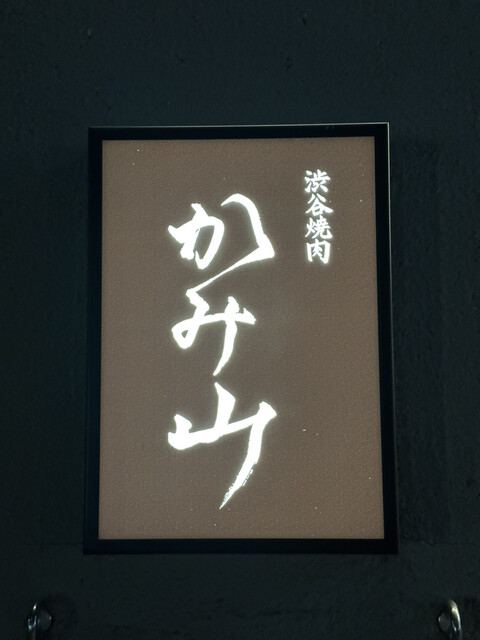 渋谷焼肉
かみ山